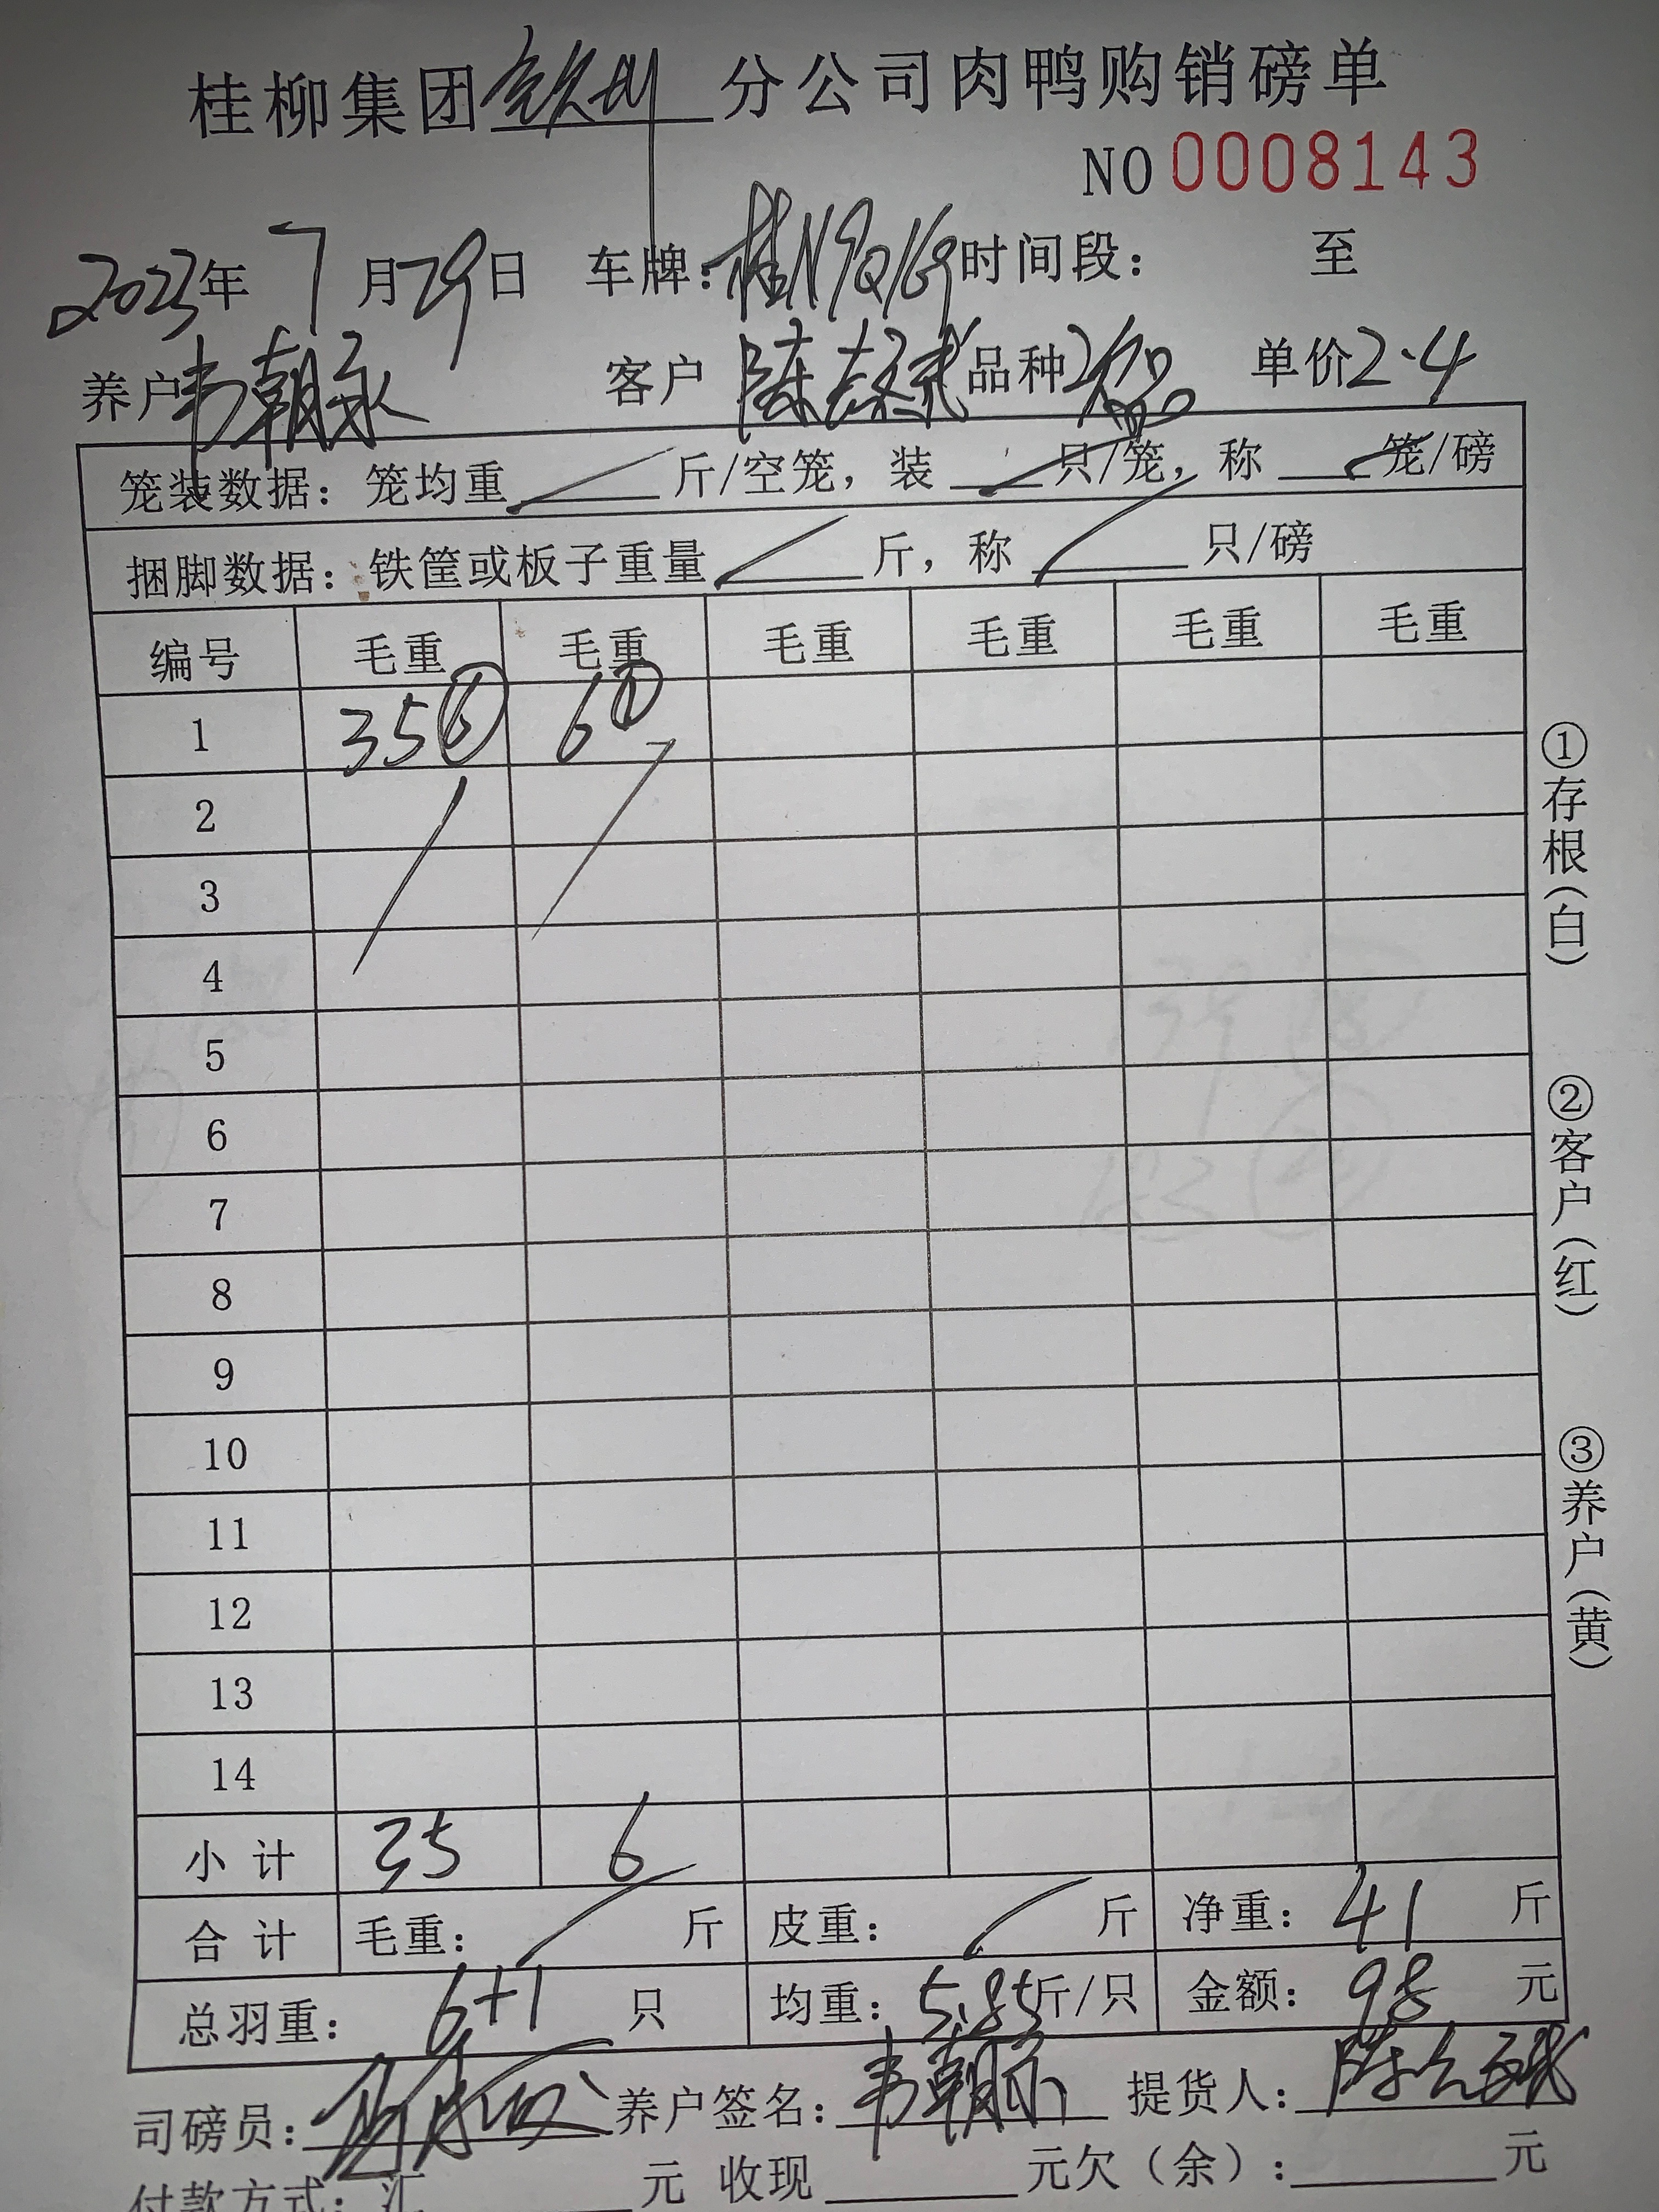 桂柳集团钦州分公司肉鸭购销磅单
NO 0008143
2023年 7月29日 车牌：桂N9Q169 时间段： 至
养户韦朝永 客户 陈 品种 单价2.4
笼装数据：笼均重 斤/空笼，装 只/笼，称 笼/磅
捆脚数据：铁筐或板子重量 斤，称 只/磅
编号 毛重 毛重 毛重 毛重 毛重 毛重
1 35⑥ 6①
2
3
4
5
6
7
8
9
10
11
12
13
14
小计 35 6
合计 毛重： 斤 皮重： 斤 净重：41斤
总羽重：6+1 只 均重：5.85斤/只 金额：98 元
司磅员： 养户签名：韦朝永 提货人：陈
付款方式：汇 元 收现 元欠（余）： 元
①存根（白）
②客户（红）
③养户（黄）